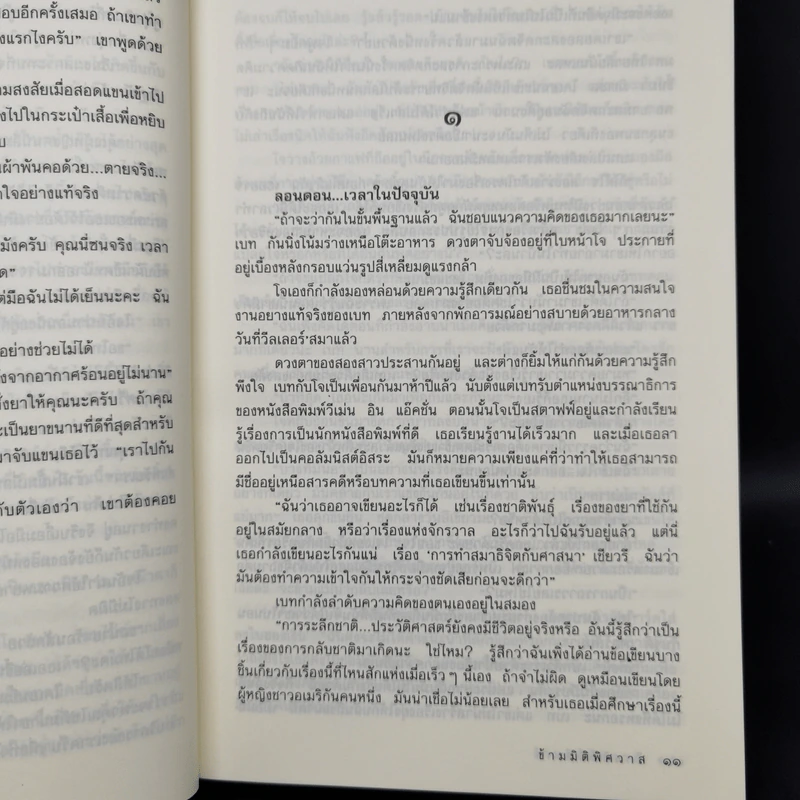 อบอีกครั้งเสมอ ถ้าเขาทำ
งแรกไงครับ” เขาพูดด้วย
ามสงสัยเมื่อสอดแขนเข้าไป
งไปในกระเป๋าเสื้อเพื่อหยิบ
บ
นผ้าพันคอด้วย...ตายจริง...
ใจอย่างแท้จริง
มังครับ คุณนี่ซนจริง เวลา
ด”
ต่มือฉันไม่ได้เย็นนะคะ ฉัน
อย่างช่วยไม่ได้
งจากอากาศร้อนอยู่ไม่นาน”
ั่งยาให้คุณนะครับ ถ้าคุณ
ะเป็นยาขนานที่ดีที่สุดสำหรับ
มาจับแขนเธอไว้ “เราไปกัน
กับตัวเองว่า เขาต้องคอย
๑
ลอนดอน...เวลาในปัจจุบัน
“ถ้าจะว่ากันในขั้นพื้นฐานแล้ว ฉันชอบแนวความคิดของเธอมากเลยนะ”
เบท กันนิ่งโน้มร่างเหนือโต๊ะอาหาร ดวงตาจับจ้องอยู่ที่ใบหน้าโจ ประกายที่
อยู่เบื้องหลังกรอบแว่นรูปสี่เหลี่ยมดูแรงกล้า
โจเองก็กำลังมองหล่อนด้วยความรู้สึกเดียวกัน เธอชื่นชมในความสนใจ
งานอยางแท้จริงของเบท ภายหลังจากพักอารมณ์อย่างสบายด้วยอาหารกลาง
วันที่วีลเลอร์’สมาแล้ว
ดวงตาของสองสาวประสานกันอยู่ และต่างก็ยิ้มให้แก่กันด้วยความรู้สึก
พึงใจ เบทกับโจเป็นเพื่อนกันมาห้าปีแล้ว นับตั้งแต่เบทรับตำแหน่งบรรณาธิการ
ของหนังสือพิมพ์วีเม่น อิน แอ๊คชั่น ตอนนั้นโจเป็นสตาฟฟ์อยู่และกำลังเรียน
รู้เรื่องการเป็นนักหนังสือพิมพ์ที่ดี เธอเรียนรู้งานได้เร็วมาก และเมื่อเธอลา
ออกไปเป็นคอลัมนิสต์อิสระ มันก็หมายความเพียงแค่ที่ว่าทำให้เธอสามารถ
มีชื่ออยู่เหนือสารคดีหรือบทความที่เธอเขียนขึ้นเท่านั้น
“ฉันว่าเธออาจเขียนอะไรก็ได้ เช่นเรื่องชาติพันธุ์ เรื่องของยาที่ใช้กัน
อยู่ในสมัยกลาง หรือว่าเรื่องแห่งจักรวาล อะไรก็ว่าไปฉันรับอยู่แล้ว แต่นี่
เธอกำลังเขียนอะไรกันแน่ เรื่อง ‘การทำสมาธิจิตกับศาสนา’ เชียวรึ ฉันว่า
มันต้องทำความเข้าใจกันให้กระจ่างชัดเสียก่อนจะดีกว่า”
เบทกำลังลำดับความคิดของตนเองอยู่ในสมอง
“การระลึกชาติ...ประวัติศาสตร์ยังคงมีชีวิตอยู่จริงหรือ อันนี้รู้สึกว่าเป็น
เรื่องของการกลับชาติมาเกิดนะ ใช่ไหม? รู้สึกว่าฉันเพิ่งได้อ่านข้อเขียนบาง
ชิ้นเกี่ยวกับเรื่องนี้ที่ไหนสักแห่งเมื่อเร็วๆ นี้เอง ถ้าจำไม่ผิด ดูเหมือนเขียนโดย
ผู้หญิงชาวอเมริกันคนหนึ่ง มันน่าเชื่อไม่น้อยเลย สำหรับเธอเมื่อศึกษาเรื่องนี้
ข้ามมิติพิศวาส ๑๑